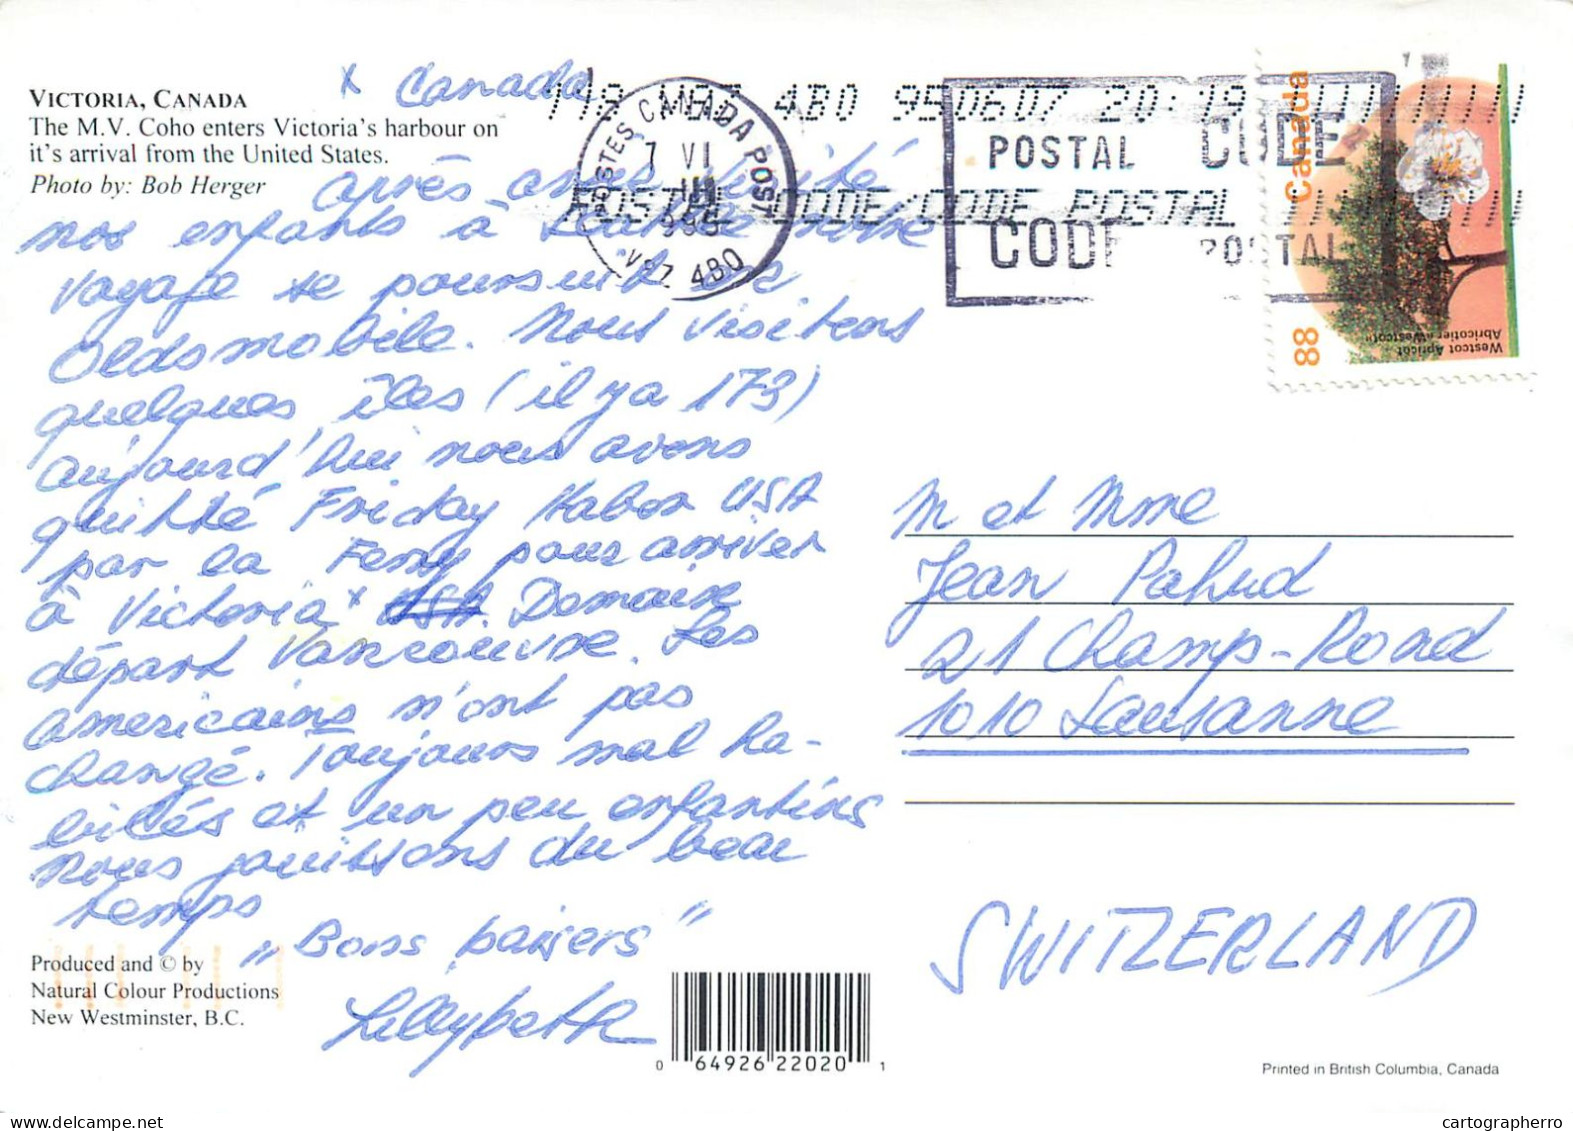 VICTORIA, CANADA
The M.V. Coho enters Victoria's harbour on
it's arrival from the United States.
Photo by: Bob Herger
x Canada
après avoir visité
nos enfants à notre
voyage se poursuit en
Oldsmobile. Nous visitons
quelques îles (il y a 173)
aujourd'hui nous avons
quitté Friday Habor USA
par la Ferry pour arriver
à Victoria x USA. Demain
départ Vancouvre. Les
americains n'ont pas
changé. Toujours mal ha-
billés et un peu enfantins
nous jouissons du beau
temps
"Bons baisers"
Lillybeth
Produced and © by
Natural Colour Productions
New Westminster, B.C.
0 64926 22020 1
4B0 95.06.07 20:19
POSTES CANADA POST
7 VI
1995
V8Z 4B0
POSTAL CODE/CODE POSTAL
POSTAL CODE
CODE POSTAL
Canada
88
Westcot Apricot
Abricotier «Westcot»
M et Mme
Jean Pahud
21 Champ-Rond
1010 Lausanne
SWITZERLAND
Printed in British Columbia, Canada
cartographerro